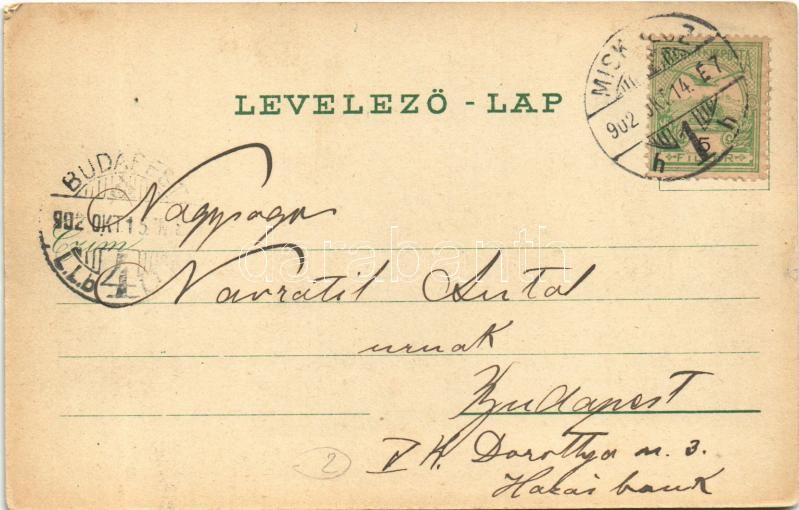 LEVELEZŐ - LAP
902 OKT 14. E7
1
h h
5
BUDAPEST
902 OKT 15
4
Czím
Nagyságos
Navratil Antal
urnak
Budapest
V K. Dorottya u. 3.
Hazai bank
2
darabanth